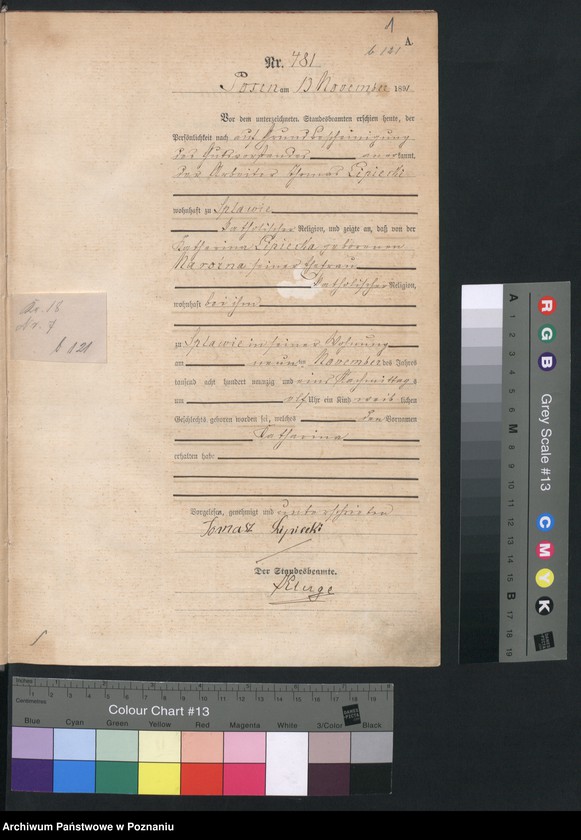 1
A.
b 121
Nr. 781
Posen am 13 November 1891
Vor dem unterzeichneten Standesbeamten erschien heute, der
Persönlichkeit nach auf Grund Bescheinigung
des Gutsvorstandes anerkannt,
der Arbeiter Thomas Lipiecki
wohnhaft zu Splawie
katholischer Religion, und zeigte an, daß von der
Katharina Lipiecka geborenen
seiner Ehefrau
katholischer Religion,
wohnhaft bei ihm
zu Splawie in seiner Wohnung
am neunten November des Jahres
tausend acht hundert neunzig und eins Nachmittags
um elf Uhr ein Kind weiblichen
Geschlechts geboren worden sei, welches den Vornamen
Katharina
erhalten habe
Vorgelesen, genehmigt und unterschrieben
Tomasz Lipiecki
Der Standesbeamte.
Kluge
Nr. 7
b 121
Inches
Centimetres
Colour Chart #13
Blue Cyan Green Yellow Red Magenta White 3/Color Black
Grey Scale #13
R G B C M Y K
A 1 2 3 4 5 6 M 8 9 10 11 12 13 14 15 B 17 18 19
Archiwum Państwowe w Poznaniu